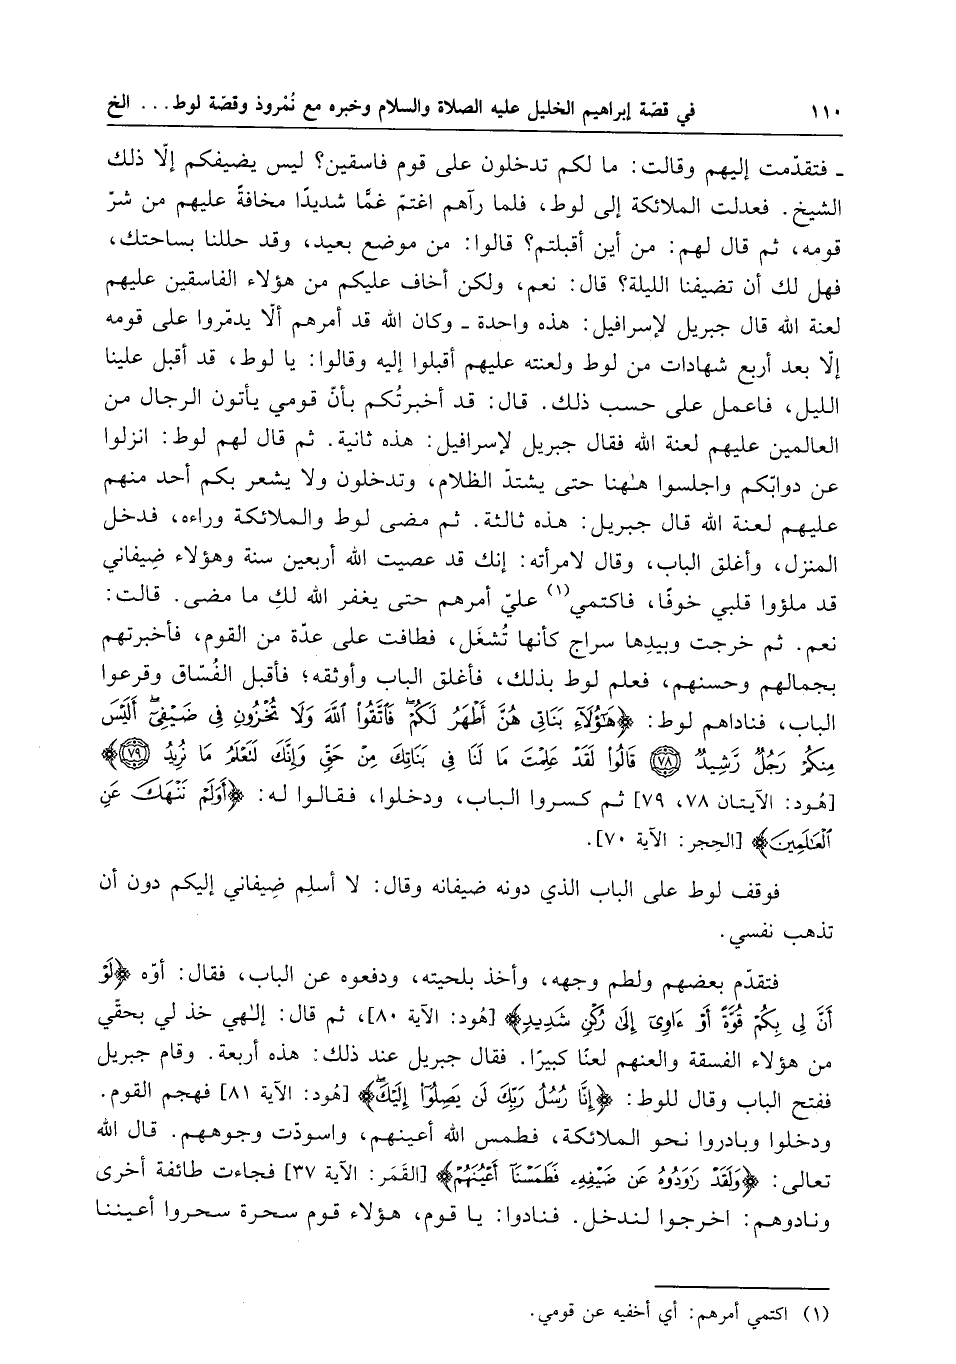 ١١٠ في قصّة إبراهيم الخليل عليه الصلاة والسلام وخبره مع نُمْروذ وقصّة لوط... الخ
ـ فتقدّمت إليهم وقالت: ما لكم تدخلون على قوم فاسقين؟ ليس يضيفكم إلّا ذلك
الشيخ. فعدلت الملائكة إلى لوط، فلما رآهم اغتمّ غمًّا شديدًا مخافةً عليهم من شرّ
قومه، ثم قال لهم: من أين أقبلتم؟ قالوا: من موضع بعيد، وقد حللنا بساحتك،
فهل لك أن تضيفنا الليلة؟ قال: نعم، ولكن أخاف عليكم من هؤلاء الفاسقين عليهم
لعنة الله قال جبريل لإسرافيل: هذه واحدة ـ وكان الله قد أمرهم ألّا يدمّروا على قومه
إلّا بعد أربع شهادات من لوط ولعنته عليهم أقبلوا إليه وقالوا: يا لوط، قد أقبل علينا
الليل، فاعمل على حسب ذلك. قال: قد أخبرتُكم بأنّ قومي يأتون الرجال من
العالمين عليهم لعنة الله فقال جبريل لإسرافيل: هذه ثانية. ثم قال لهم لوط: انزلوا
عن دوابّكم واجلسوا هـٰهنا حتى يشتدّ الظلام، وتدخلون ولا يشعر بكم أحد منهم
عليهم لعنة الله قال جبريل: هذه ثالثة. ثم مضى لوط والملائكة وراءه، فدخل
المنزل، وأغلق الباب، وقال لامرأته: إنك قد عصيت الله أربعين سنة وهؤلاء ضِيفاني
قد ملؤوا قلبي خوفًا، فاكتمي(١) عليّ أمرهم حتى يغفر الله لكِ ما مضى. قالت:
نعم. ثم خرجت وبيدِها سراج كأنها تُشغَل، فطافت على عدّة من القوم، فأخبرتهم
بجمالهم وحسنهم، فعلم لوط بذلك، فأغلق الباب وأوثقه؛ فأقبل الفُسّاق وقرعوا
الباب، فناداهم لوط: ﴿هَٰٓؤُلَآءِ بَنَاتِى هُنَّ أَطْهَرُ لَكُمْ ۖ فَٱتَّقُوا۟ ٱللَّهَ وَلَا تُخْزُونِ فِى ضَيْفِىٓ ۖ أَلَيْسَ
مِنكُمْ رَجُلٌ رَّشِيدٌ ﴿٧٨﴾ قَالُوا۟ لَقَدْ عَلِمْتَ مَا لَنَا فِى بَنَاتِكَ مِنْ حَقٍّ وَإِنَّكَ لَتَعْلَمُ مَا نُرِيدُ ﴿٧٩﴾﴾
[هُود: الآيتان ٧٨، ٧٩] ثم كسروا الباب، ودخلوا، فقالوا له: ﴿أَوَلَمْ نَنْهَكَ عَنِ
ٱلْعَٰلَمِينَ﴾ [الحِجر: الآية ٧٠].
فوقف لوط على الباب الذي دونه ضيفانه وقال: لا أسلِم ضِيفاني إليكم دون أن
تذهب نفسي.
فتقدّم بعضهم ولطم وجهه، وأخذ بلحيته، ودفعوه عن الباب، فقال: أوّه ﴿لَوْ
أَنَّ لِى بِكُمْ قُوَّةً أَوْ ءَاوِىٓ إِلَىٰ رُكْنٍ شَدِيدٍ﴾ [هُود: الآية ٨٠]، ثم قال: إلـٰهي خذ لي بحقّي
من هؤلاء الفسقة والعنهم لعنًا كبيرًا. فقال جبريل عند ذلك: هذه أربعة. وقام جبريل
ففتح الباب وقال للوط: ﴿إِنَّا رُسُلُ رَبِّكَ لَن يَصِلُوٓا۟ إِلَيْكَ ۖ﴾ [هُود: الآية ٨١] فهجم القوم.
ودخلوا وبادروا نحو الملائكة، فطمس الله أعينهم، واسودّت وجوههم. قال الله
تعالى: ﴿وَلَقَدْ رَٰوَدُوهُ عَن ضَيْفِهِۦ فَطَمَسْنَآ أَعْيُنَهُمْ﴾ [القَمَر: الآية ٣٧] فجاءت طائفة أخرى
ونادوهم: اخرجوا لندخل. فنادوا: يا قوم، هؤلاء قوم سحرة سحروا أعيننا
(١) اكتمي أمرهم: أي أخفيه عن قومي.